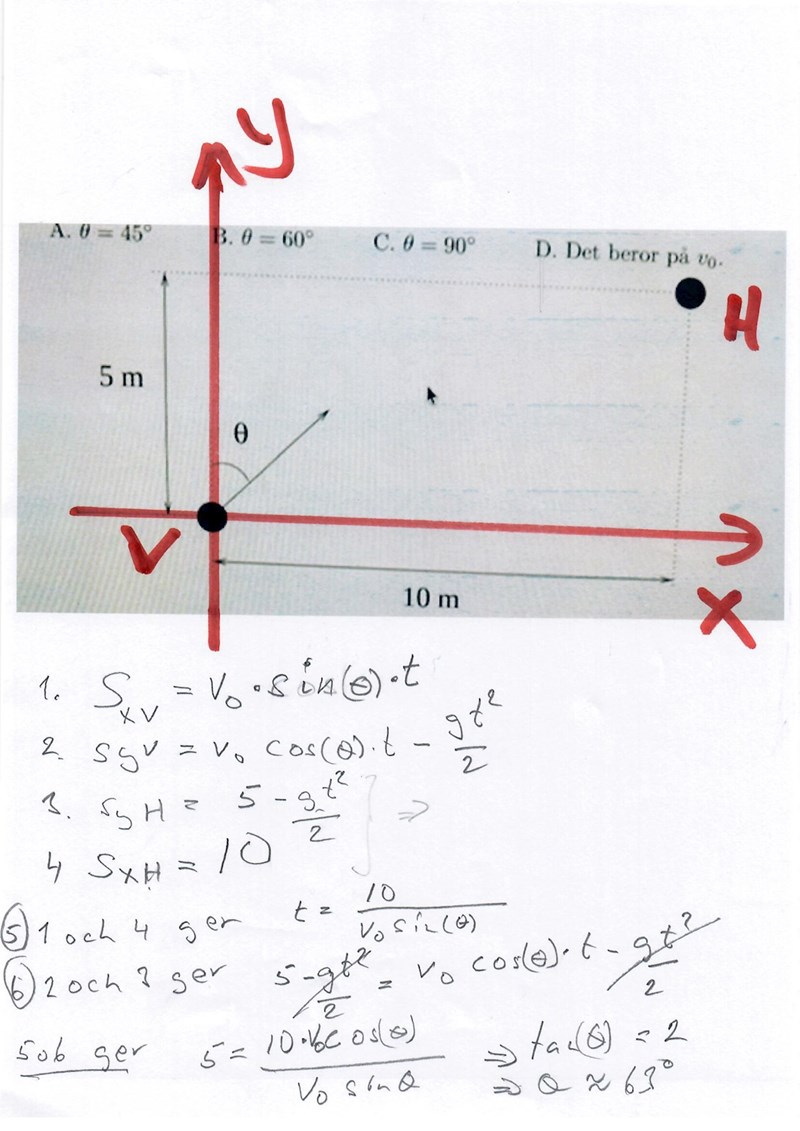 Y
A. θ = 45° B. θ = 60° C. θ = 90° D. Det beror på v₀.
H
5 m
θ
V
10 m
X
1. S_xv = V₀ · sin(θ) · t
2. syv = v₀ cos(θ) · t − gt²/2
3. syH = 5 − gt²/2 } ⇒
4 S_xH = 10
⑤ 1 och 4 ger t = 10/(V₀ sin(θ))
⑥ 2 och 3 ger 5 − gt²/2 = v₀ cos(θ) · t − gt²/2
5 o 6 ger 5 = 10 · V₀ cos(θ)/(V₀ sin θ) ⇒ tan(θ) = 2
⇒ θ ≈ 63°